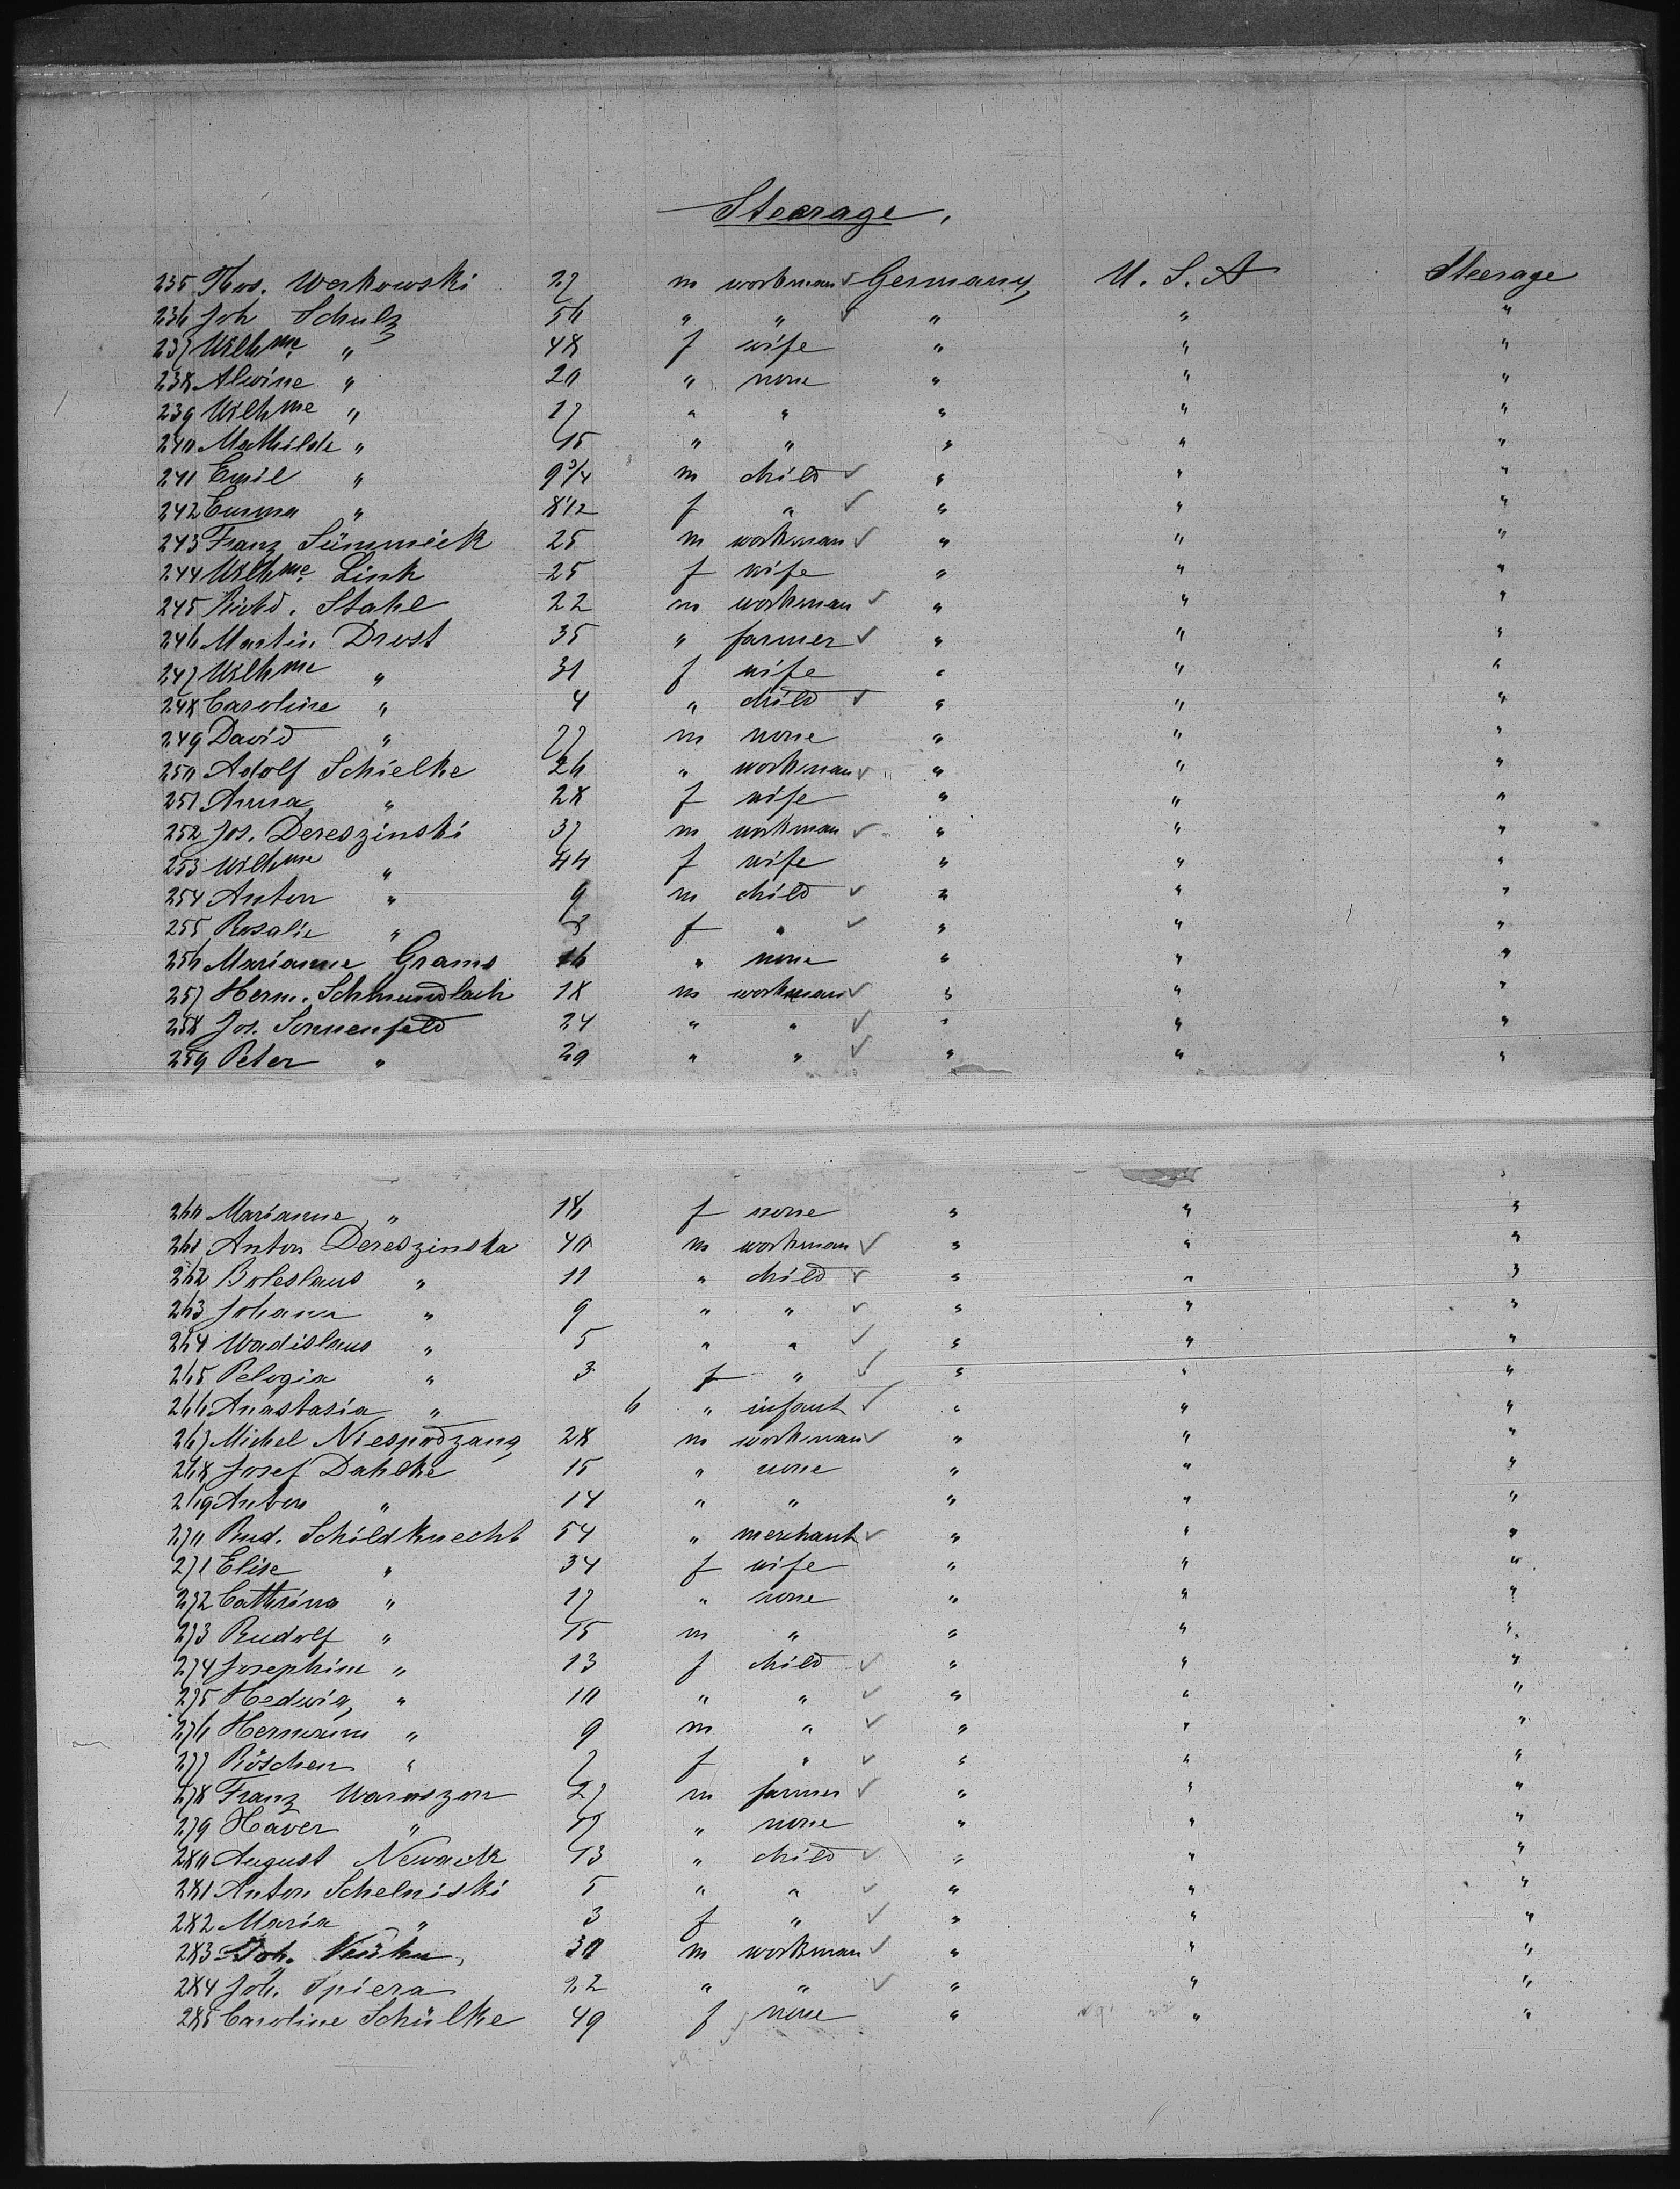 Steerage.
235 Thos. Werkowski 27 m workman Germany U. S. A Steerage
236 Joh Schulz 56 " " " " "
237 Wilhme " 48 f wife " " "
238 Alwine " 20 " none " " "
239 Wilhme " 17 " " " " "
240 Mathilde " 15 " " " " "
241 Emil " 9 3/4 m child " " "
242 Emma " 8 1/2 f " " " "
243 Franz Sümmeick 25 m workman " " "
244 Wilhme Link 25 f wife " " "
245 Richd. Stahl 22 m workman " " "
246 Martin Drost 35 " farmer " " "
247 Wilhme " 31 f wife " " "
248 Caroline " 4 " child " " "
249 David " 77 m none " " "
250 Adolf Schielke 26 " workman " " "
251 Anna " 28 f wife " " "
252 Jos. Dereszinski 37 m workman " " "
253 Wilhme " 44 f wife " " "
254 Anton " 9 m child " " "
255 Rosalie " 3 f " " " "
256 Marianne Grams 16 " none " " "
257 Herm. Schmundlach 18 m workman " " "
258 Jos. Sonnenfeld 24 " " " " "
259 Peter " 29 " " " " "
260 Marianne " 16 f none " " "
261 Anton Dereszinska 40 m workman " " "
262 Boleslaus " 11 " child " " "
263 Johann " 9 " " " " "
264 Wadislaus " 5 " " " " "
265 Pelogia " 3 f " " " "
266 Anastasia " 6 " infant " " "
267 Michel Niespodzany 28 m workman " " "
268 Josef Dahlke 15 " none " " "
269 Anton " 14 " " " " "
270 Rud. Schildknecht 54 " merchant " " "
271 Elise " 34 f wife " " "
272 Cathrina " 17 " none " " "
273 Rudolf " 15 m " " " "
274 Josephine " 13 f child " " "
275 Hedwig " 10 " " " " "
276 Hermann " 9 m " " " "
277 Röschen " 7 f " " " "
278 Franz Waroszon 27 m farmer " " "
279 Haver " 17 " none " " "
280 August Newack 13 " child " " "
281 Anton Schelniski 5 " " " " "
282 Maria " 3 f " " " "
283 Joh. 30 m workman " " "
284 Joh. Spiera 22 " " " " "
285 Caroline Schülke 49 f none " " "